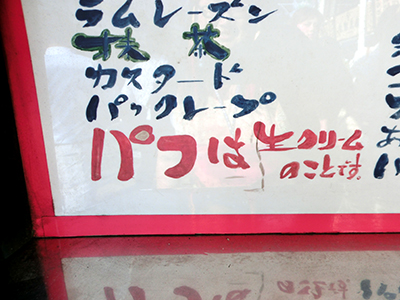 ラムレーズン
抹茶
カスタード
パックレープ
パフは生クリーム
のことです。